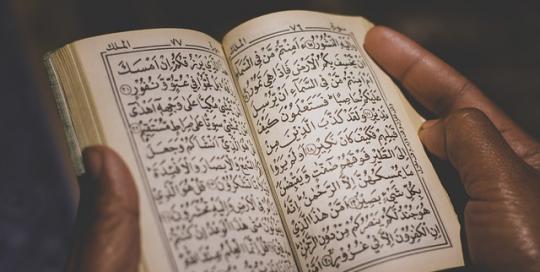 الملك
إليه النشور ءأمنتم من في السماء
أن يخسف بكم الأرض فإذا هي تمور
أم أمنتم من في السماء أن يرسل
عليكم حاصبا فستعلمون كيف
نذير ولقد كذب الذين من
قبلهم فكيف كان نكير ١٨ أولم يروا
إلى الطير فوقهم صفت ويقبضن
ما يمسكهن إلا الرحمن إنه
بكل شيء بصير ١٩ أمن هذا الذي
هو جند لكم ينصركم من دون الرحمن
إن الكفرون إلا في غرور ٢٠
الملك ٧٧
الذي يرزقكم إن أمسك
رزقه بل لجوا في عتو ونفور ٢١
أفمن يمشي مكبا على وجهه أهدى
أمن يمشي سويا على صراط مستقيم ٢٢
قل هو الذي أنشأكم وجعل
لكم السمع والأبصار والأفئدة
تشكرون ٢٣ قل هو الذي
في الأرض وإليه تحشرون
متى هذا الوعد إن كنتم